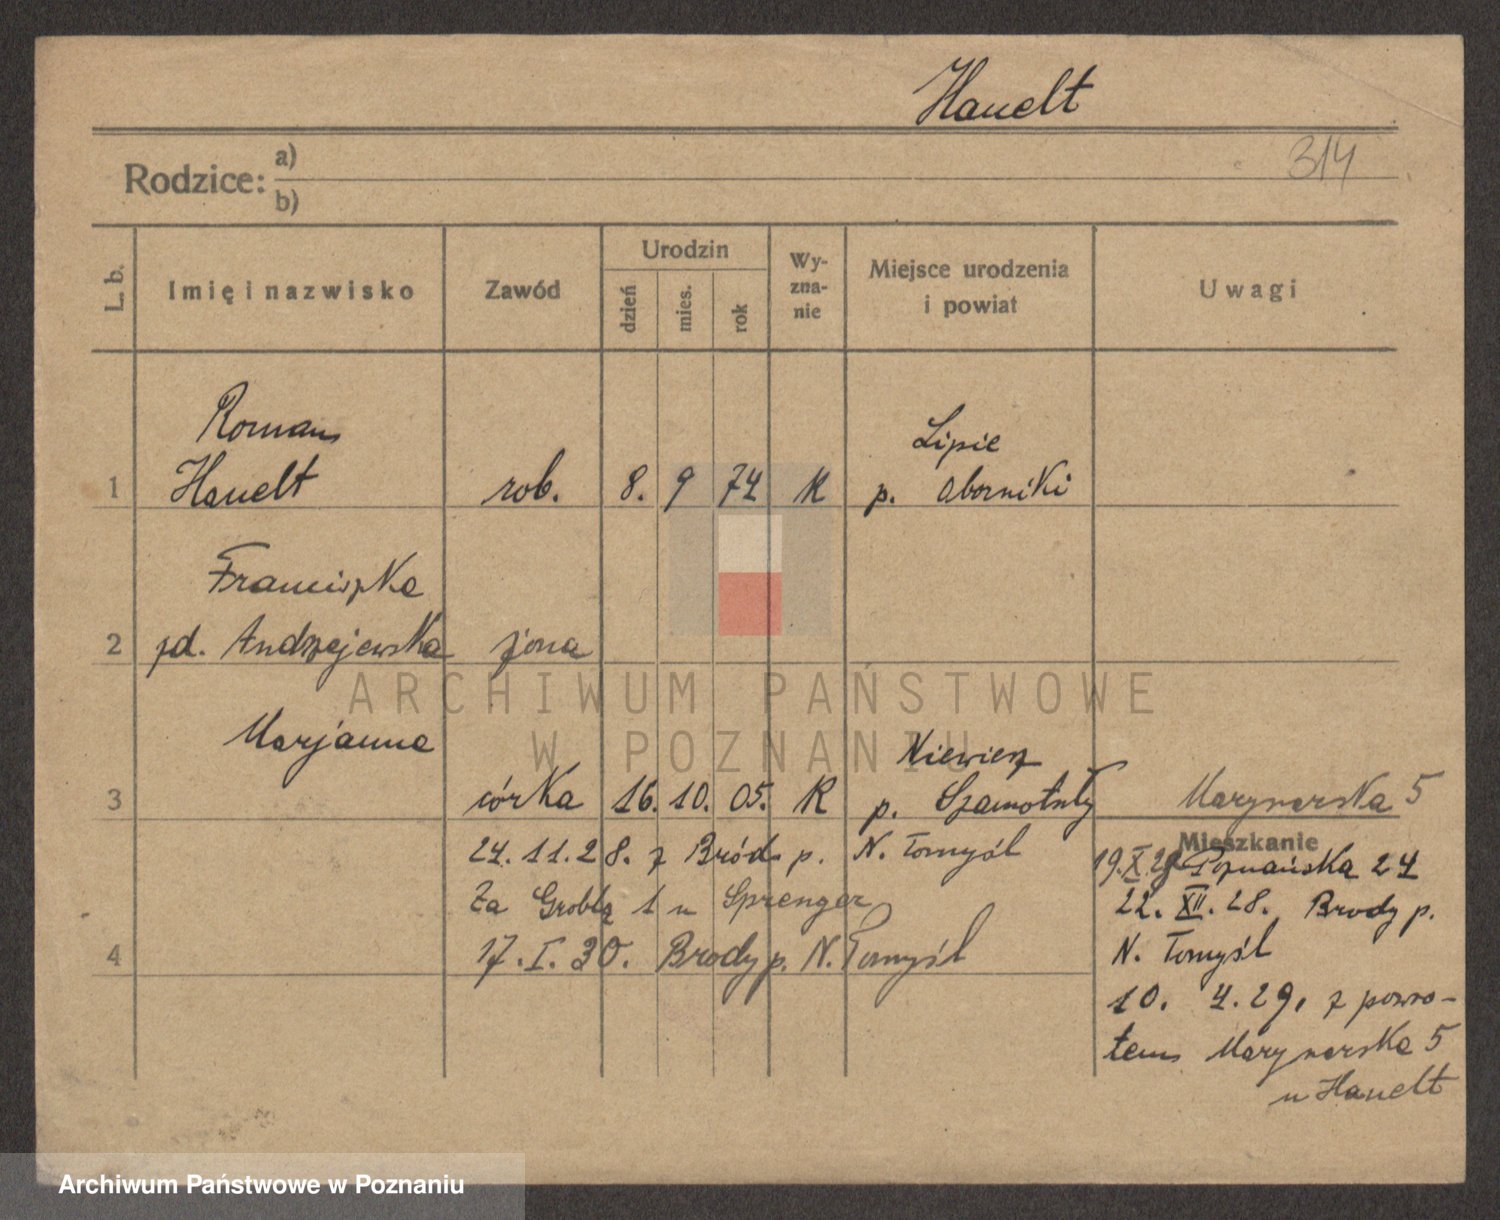 Hauelt
314
Rodzice: a)
b)
L. b.
Imię i nazwisko
Zawód
Urodzin
dzień
mies.
rok
Wy-
zna-
nie
Miejsce urodzenia
i powiat
Uwagi
Roman
Lipie
1 Hauelt rob. 8. 9 74 K p. Oborniki
Franciszka
2 zd. Andrzejewska żona
Marjanna
Niewierz
3 córka 16. 10. 05. K p. Szamotuły Marynarska 5
Mieszkanie
24. 11. 28. z Bród p. N. Tomyśl
19.X.29 Poznańska 24
Za Groblą 1 u Sprenger
22. XII. 28. Brody p.
4 17. I. 30. Brody p. N. Tomyśl
N. Tomyśl
10. 4. 29. z powro-
tem Marynarska 5
u Hauelt
ARCHIWUM PAŃSTWOWE
W POZNANIU
Archiwum Państwowe w Poznaniu